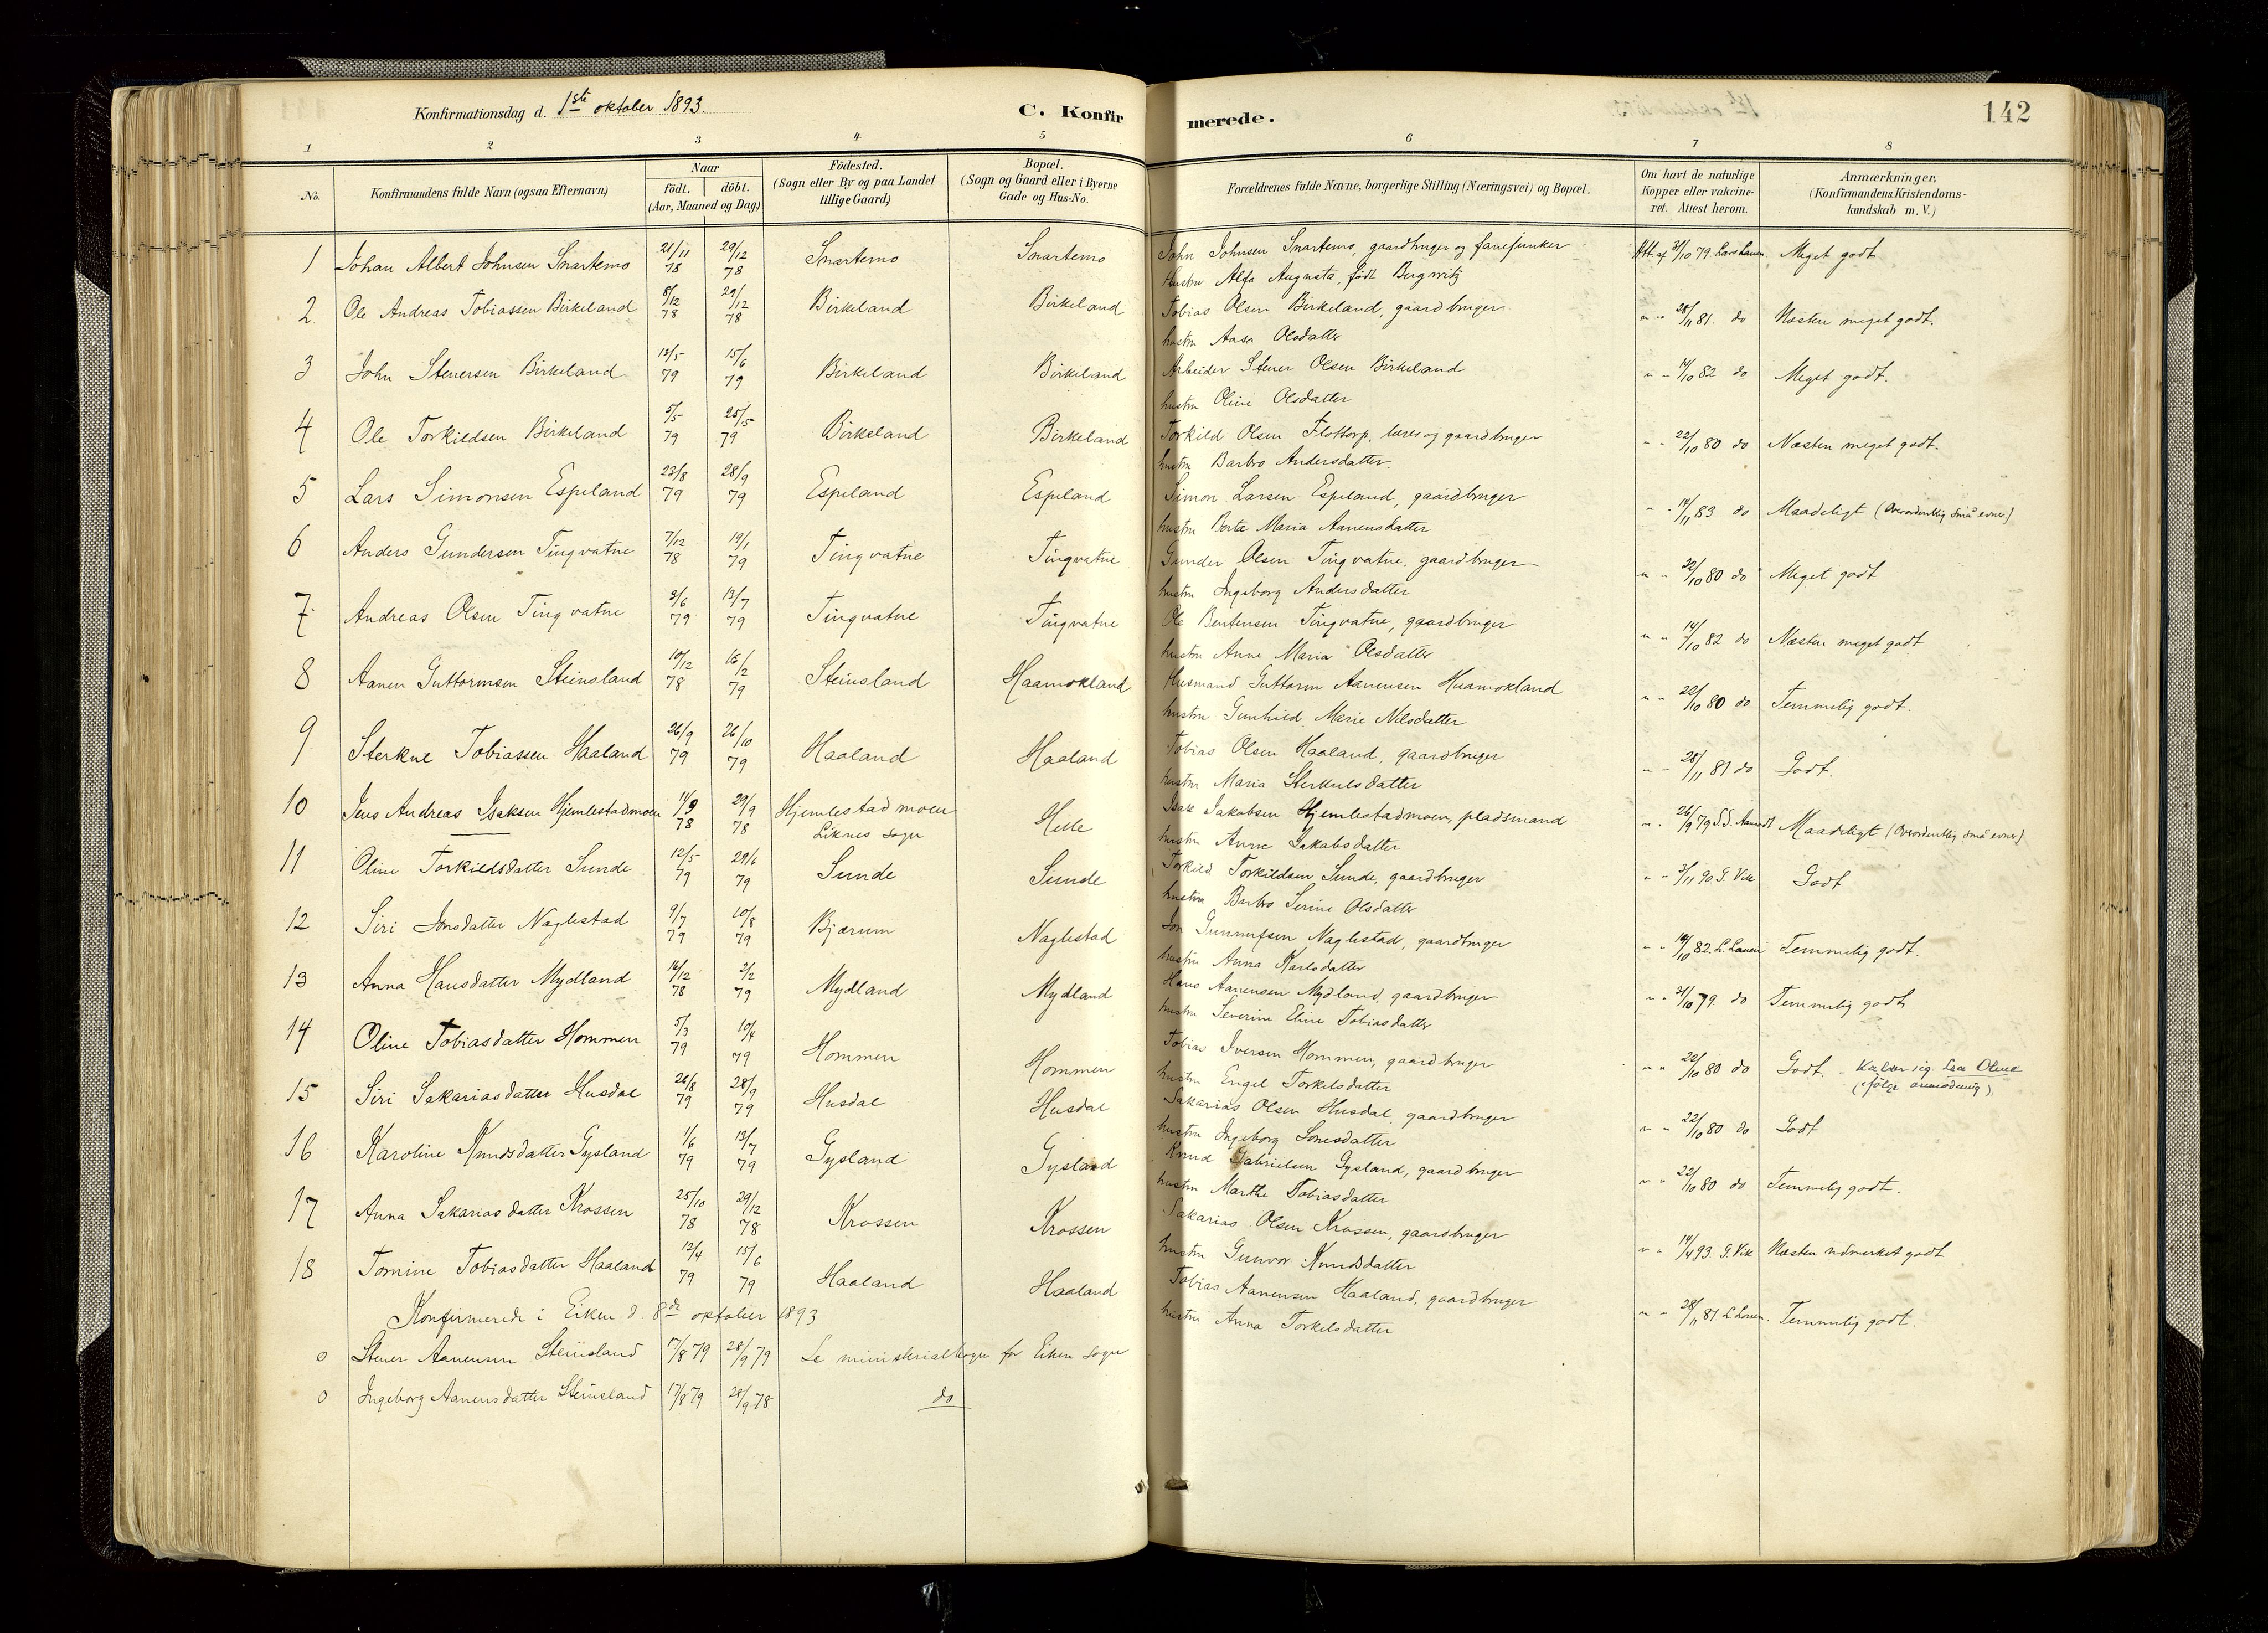 Konfirmationsdag d. 1ste oktober 1893.
C. Konfirmerede.
142
1 2 3 4 5 6 7 8
No.
Konfirmandens fulde Navn (ogsaa Efternavn)
Naar
födt. döbt.
(Aar, Maaned og Dag)
Födested.
(Sogn eller By og paa Landet
tillige Gaard)
Bopæl.
(Sogn og Gaard eller i Byerne
Gade og Hus-No.
Forældrenes fulde Navne, borgerlige Stilling (Næringsvei) og Bopæl.
Om havt de naturlige
Kopper eller vakcine-
ret. Attest herom.
Anmærkninger.
(Konfirmandens Kristendoms-
kundskab m. V.)
1 Johan Albert Johnsen Snartemo 21/11 78 29/12 78 Snartemo Snartemo John Johnsen Snartemo, gaardbruger og fanejunker Att. af 31/10 79. Meget godt
Hustru Alfa Augusta, født Bergwitz
2 Ole Andreas Tobiassen Birkeland 8/12 78 29/12 78 Birkeland Birkeland Tobias Olsen Birkeland, gaardbruger " " 28/11 81. do Næsten meget godt.
hustru Aasa Olsdatter
3 John Stenersen Birkeland 13/5 79 15/6 79 Birkeland Birkeland Arbeider Stener Olsen Birkeland " " 14/10 82 do Meget godt.
hustru Oline Olsdatter
4 Ole Torkildsen Birkeland 5/5 79 25/5 79 Birkeland Birkeland Torkild Olsen Flottorp, lærer og gaardbruger " " 22/10 80 do Næsten meget godt.
hustru Barbro Andersdatter
5 Lars Simonsen Espeland 23/8 79 28/9 79 Espeland Espeland Simon Larsen Espeland, gaardbruger " " 14/11 83 do Maadeligt (Overordentlig små evner)
hustru Berte Maria Aanensdatter
6 Anders Gundersen Tingvatne 7/12 78 19/1 79 Tingvatne Tingvatne Gunder Olsen Tingvatne, gaardbruger " " 22/10 80 do Meget godt
hustru Ingeborg Andersdatter
7 Andreas Olsen Tingvatne 3/6 79 13/7 79 Tingvatne Tingvatne Ole Bentensen Tingvatne, gaardbruger " " 14/10 82 do Næsten meget godt
hustru Anne Maria Olsdatter
8 Aanen Guttormsen Steinsland 10/12 78 16/2 79 Steinsland Haamokland Husmand Guttorm Aanensen Haamokland " " 22/10 80 do Temmelig godt.
hustru Gunhild Marie Nilsdatter
9 Sterkne Tobiassen Haaland 26/9 79 26/10 79 Haaland Haaland Tobias Olsen Haaland, gaardbruger " " 28/11 81 do Godt.
hustru Maria Sterkulsdatter
10 Jens Andreas Isaksen Hjemlestadmoen 11/9 78 29/9 78 Hjemlestadmoen Helle Isak Jakobsen Hjemlestadmoen, pladsmand " " 26/9 79 Maadeligt (Overordentlig små evner)
Liknes sogn
hustru Anne Jakobsdatter
11 Oline Torkildsdatter Sunde 12/5 79 29/6 79 Sunde Sunde Torkild Torkildsen Sunde, gaardbruger " " 3/11 90. G. Vik Godt
hustru Barbro Serine Olsdatter
12 Siri Jonsdatter Naglestad 9/7 79 10/8 79 Bjærum Naglestad Jon Gunnufsen Naglestad, gaardbruger " " 14/10 82. Temmelig godt.
hustru Anna Karlsdatter
13 Anna Hansdatter Mydland 16/12 78 2/2 79 Mydland Mydland Hans Aanensen Mydland, gaardbruger " " 31/10 79. do Temmelig godt
hustru Severine Eline Tobiasdatter
14 Oline Tobiasdatter Hommen 5/3 79 10/4 79 Hommen Hommen Tobias Iversen Hommen, gaardbruger " " 22/10 80 do Godt. - Kalder sig Olene
(ifølge anmodning)
hustru Engel Torkelsdatter
15 Siri Sakariasdatter Husdal 26/8 79 28/9 79 Husdal Husdal Sakarias Olsen Husdal, gaardbruger " " 22/10 80 do Godt
hustru Ingeborg Jonesdatter
16 Karoline Knudsdatter Gysland 1/6 79 13/7 79 Gysland Gysland Knud Gabrielsen Gysland, gaardbruger " " 22/10 80 do Temmelig godt.
hustru Marthe Tobiasdatter
17 Anna Sakariasdatter Krossen 25/10 78 29/12 78 Krossen Krossen Sakarias Olsen Krossen, gaardbruger " " 14/4 93. G. Vik Næsten udmerket godt
hustru Gunvor Knudsdatter
18 Tomine Tobiasdatter Haaland 12/4 79 15/6 79 Haaland Haaland Tobias Aanensen Haaland, gaardbruger " " 28/11 81. Temmelig godt.
hustru Anna Torkelsdatter
Konfirmerede i Eiken d. 8de oktober 1893
0 Stener Aanensen Steinsland 17/8 79 28/9 79 Se ministerialbogen for Eiken sogn
0 Ingeborg Aanensdatter Steinsland 17/8 79 28/9 78 do